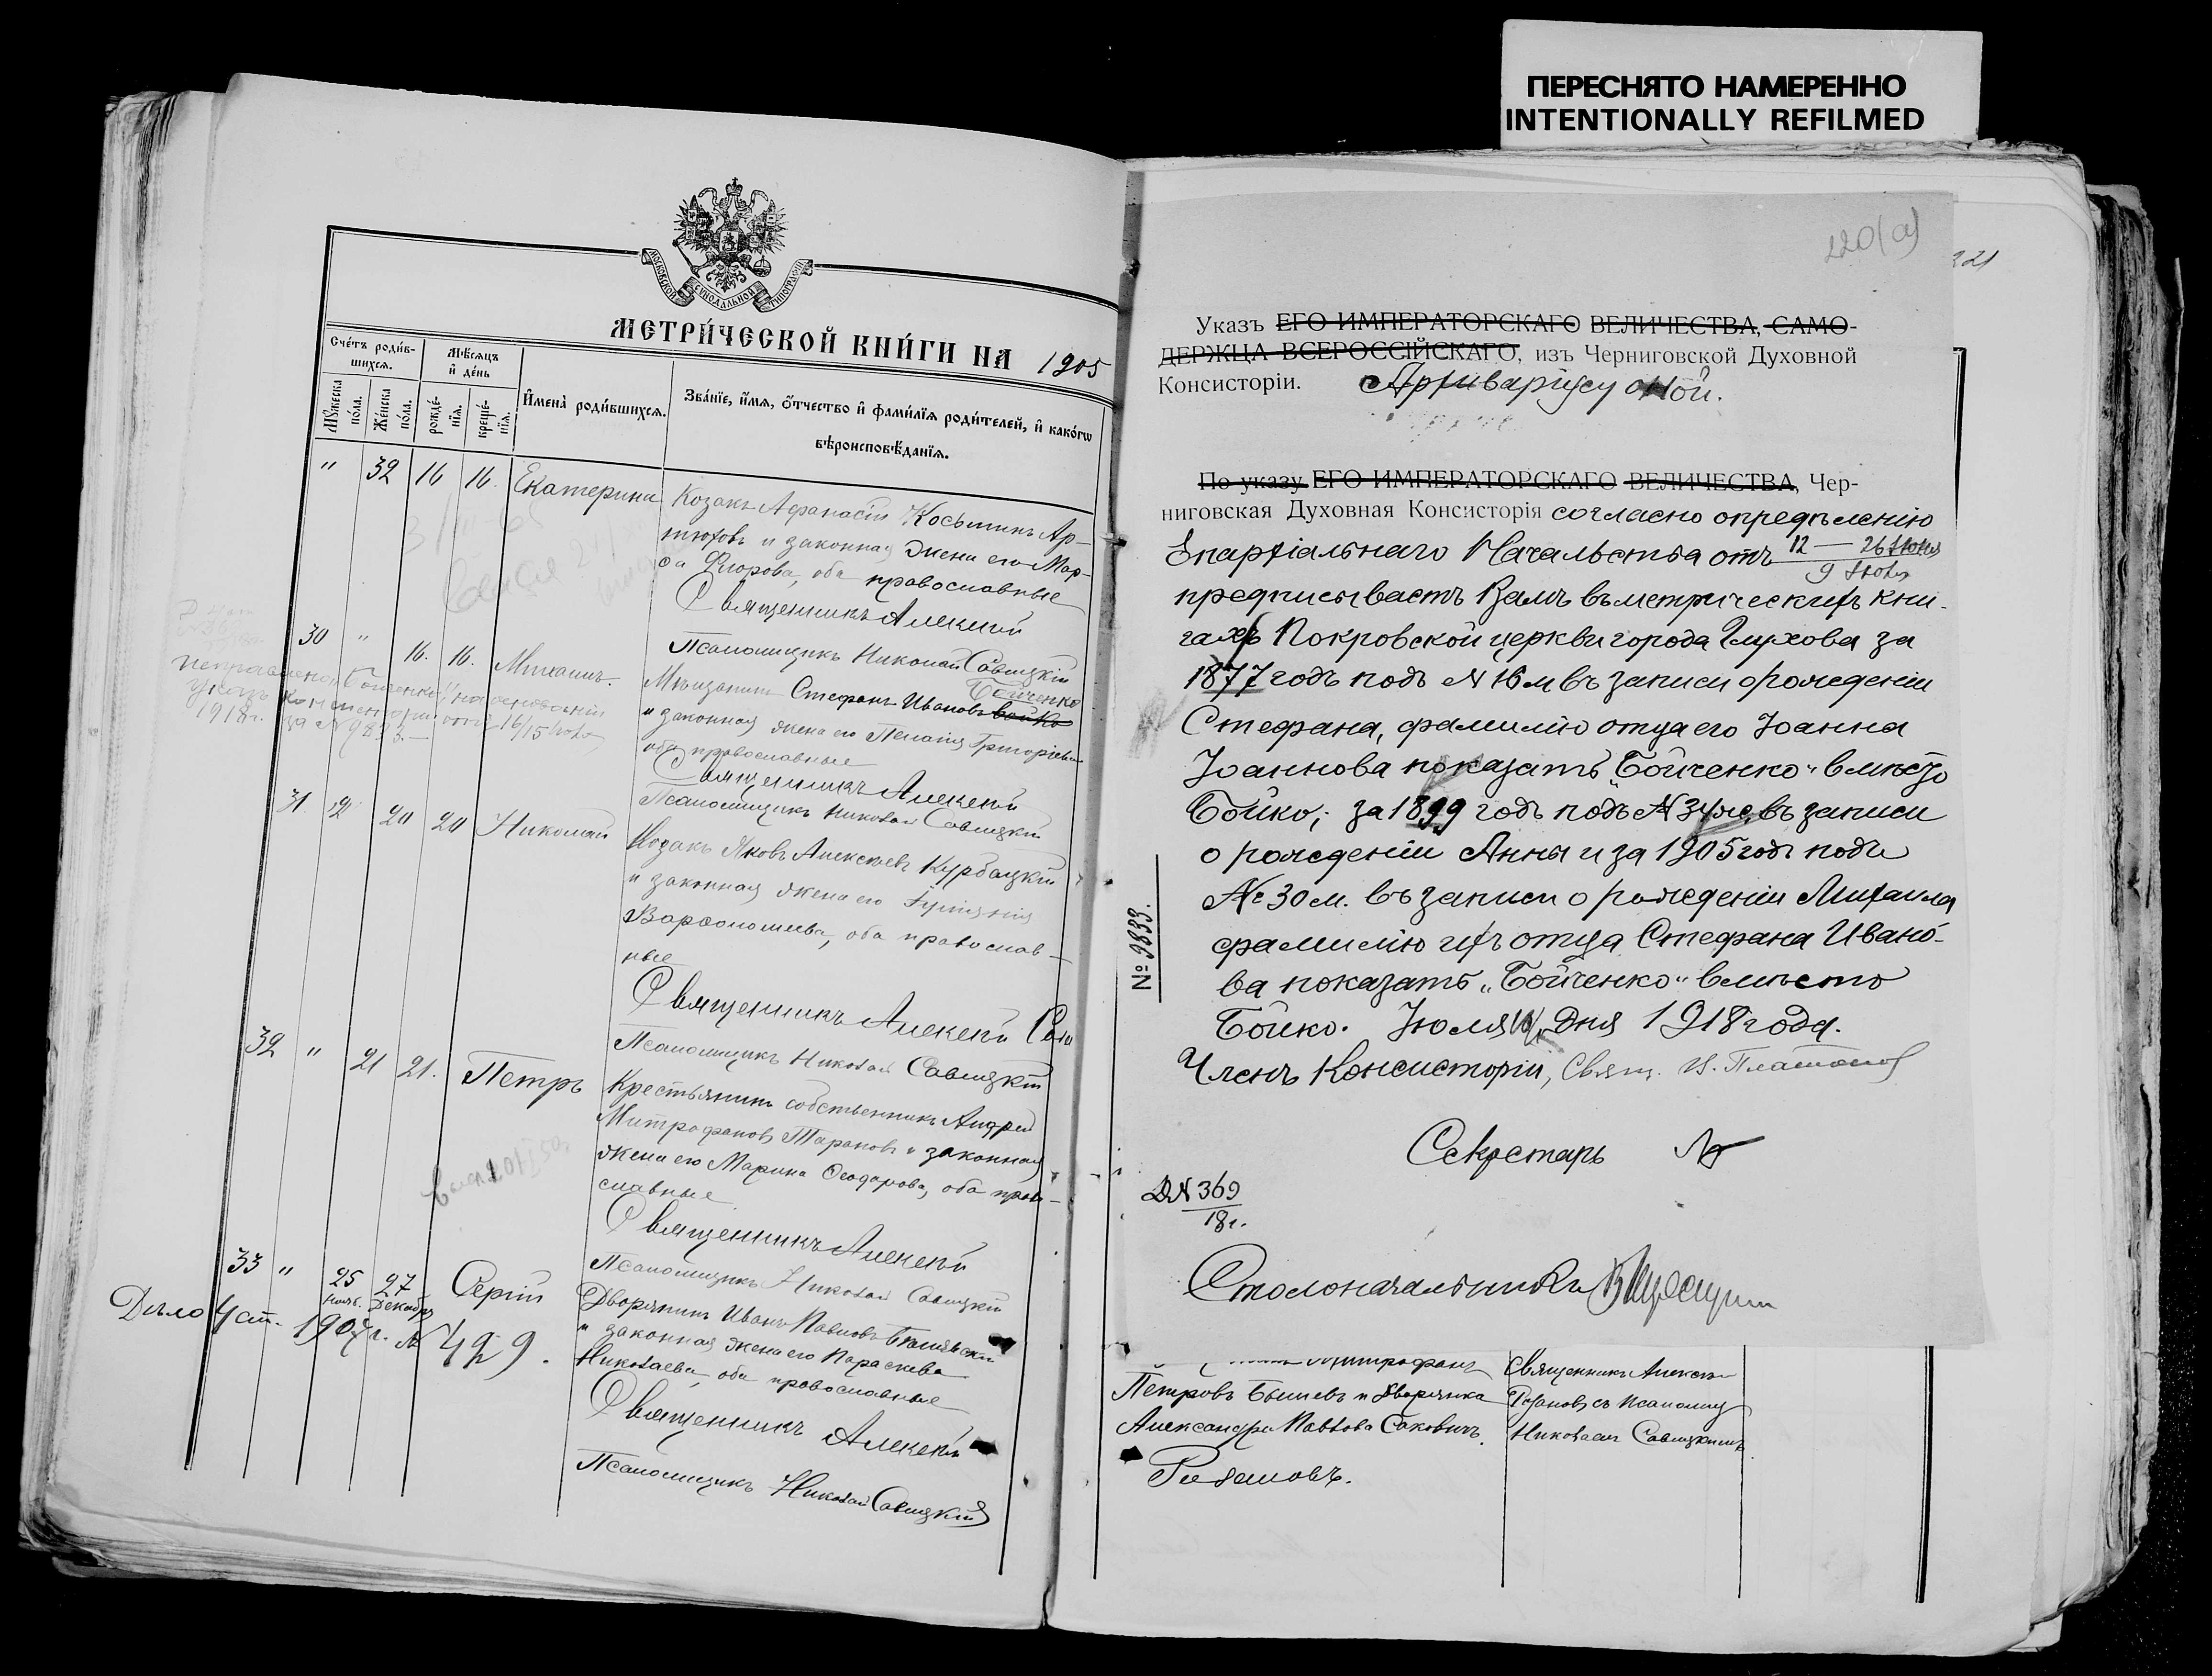 ПЕРЕСНЯТО НАМЕРЕННО
INTENTIONALLY REFILMED
МОСКОВСКОЙ СѴНОДАЛЬНОЙ ТИПОГРАФІИ
МЕТРИ́ЧЕСКОЙ КНИ́ГИ НА 1905
Сче́тъ роди́в-
шихся.
Мꙋ́жеска
по́ла.
Же́нска
по́ла.
Мѣ́сяцъ
и҆ де́нь
рожде́-
нїѧ.
креще́-
нїѧ.
И҆мена̀ роди́вшихся.
Зва́нїе, и҆́мѧ, ѻ҆́тчество и҆ фами́лїѧ роди́телей, и҆ како́гѡ
вѣроисповѣ́данїѧ.
" 32 16 16. Екатерина
Козакъ Афанасій Косьминъ Ар-
тюховъ и законная жена его Мар-
фа Флорова, оба православные
Священникъ Алексѣй
Псаломщикъ Николай Савицкій
30 " 16. 16. Михаилъ.
Мѣщанинъ Стефанъ Ивановъ Бойко
Бойченко
и законная жена его Пелагія Григорьева
оба православные
Священникъ Алексѣй
Псаломщикъ Николай Савицкій
Исправлено „Бойченко“ на основаніи
указа Консисторіи отъ 16/15 Іюля
1918 г. за № 9833.—
31. " 20 20 Николай
Козакъ Яковъ Алексѣевъ Курбацкій
и законная жена его
Варфоломеева, оба православ-
ные
Священникъ Алексѣй
Псаломщикъ Николай Савицкій
32 " 21 21. Петръ
Крестьянинъ собственникъ Андрей
Митрофановъ Тарановъ и законная
жена его Марина Ѳеодорова, оба право-
славные
Священникъ Алексѣй
Псаломщикъ Николай Савицкій
33 " 25 27 Сергій
Нояб. Декабр
Дворянинъ Иванъ Павловъ
и законная жена его Параскева
Николаева, оба православные
Священникъ Алексѣй
Псаломщикъ Николай Савицкій
Дѣло 4 ст. 1907 г. № 429.
220(а)
221
Указъ ЕГО ИМПЕРАТОРСКАГО ВЕЛИЧЕСТВА, САМО-
ДЕРЖЦА ВСЕРОССІЙСКАГО, изъ Черниговской Духовной
Консисторіи. Архиваріусу оной.
По указу ЕГО ИМПЕРАТОРСКАГО ВЕЛИЧЕСТВА, Чер-
ниговская Духовная Консисторія согласно опредѣленію
Епархіальнаго Начальства отъ 12 — 26 Іюня
9 Іюля
предписываетъ Вамъ въ метрическихъ кни-
гахъ Покровской церкви города Глухова за
1877 годъ подъ № 16 м въ записи о рожденіи
Стефана, фамилію отца его Іоанна
Іоаннова показать „Бойченко“ вмѣсто
Бойко; за 1899 годъ подъ № 34 ж. въ записи
о рожденіи Анны и за 1905 годъ подъ
№ 30 м. въ записи о рожденіи Михаила
фамилію ихъ отца Стефана Ивано-
ва показать „Бойченко“ вмѣсто
Бойко. Іюля 16 дня 1918 года.
Членъ Консисторіи, Свящ. И. Платонов
Секретарь
№ 9833.
Д № 369
18 г.
Столоначальникъ
Митрофанъ
Петровъ и Дворянка
Александра Павлова Саковичъ.
Священникъ Алексѣй
съ псаломщ
Николаемъ Савицкимъ.